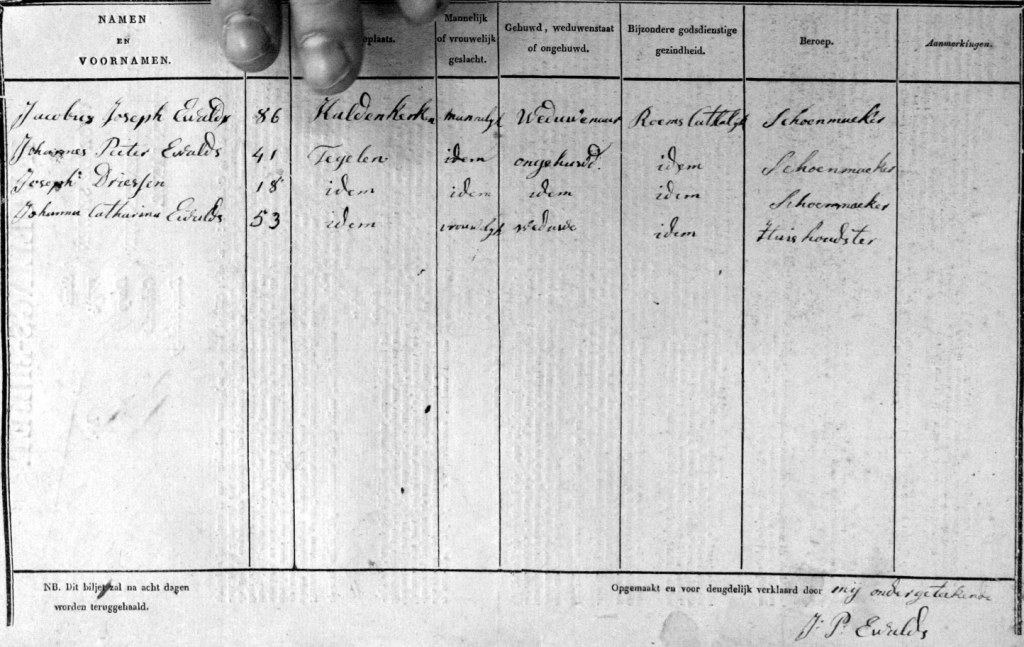 NAMEN EN VOORNAMEN. plaats. Mannelijk of vrouwelijk geslacht. Gehuwd, weduwenstaat of ongehuwd. Bijzondere godsdienstige gezindheid. Beroep. Aanmerkingen.
Jacobus Joseph Ewalds 86 Haldenkerken mannelijk Weduwenaar Roems Catholijk Schoenmaeker
Johannes Peeter Ewalds 41 Tegelen idem ongehuwd. idem Schoenmaeker
Joseph Driessen 18 idem idem idem idem Schoenmaeker
Johanna Catharina Ewalds 53 idem vrouwelijk weduwe idem Huishoudster
NB. Dit biljet zal na acht dagen
worden teruggehaald.
Opgemaakt en voor deugdelijk verklaard door mij ondergetekende
J. P. Ewalds